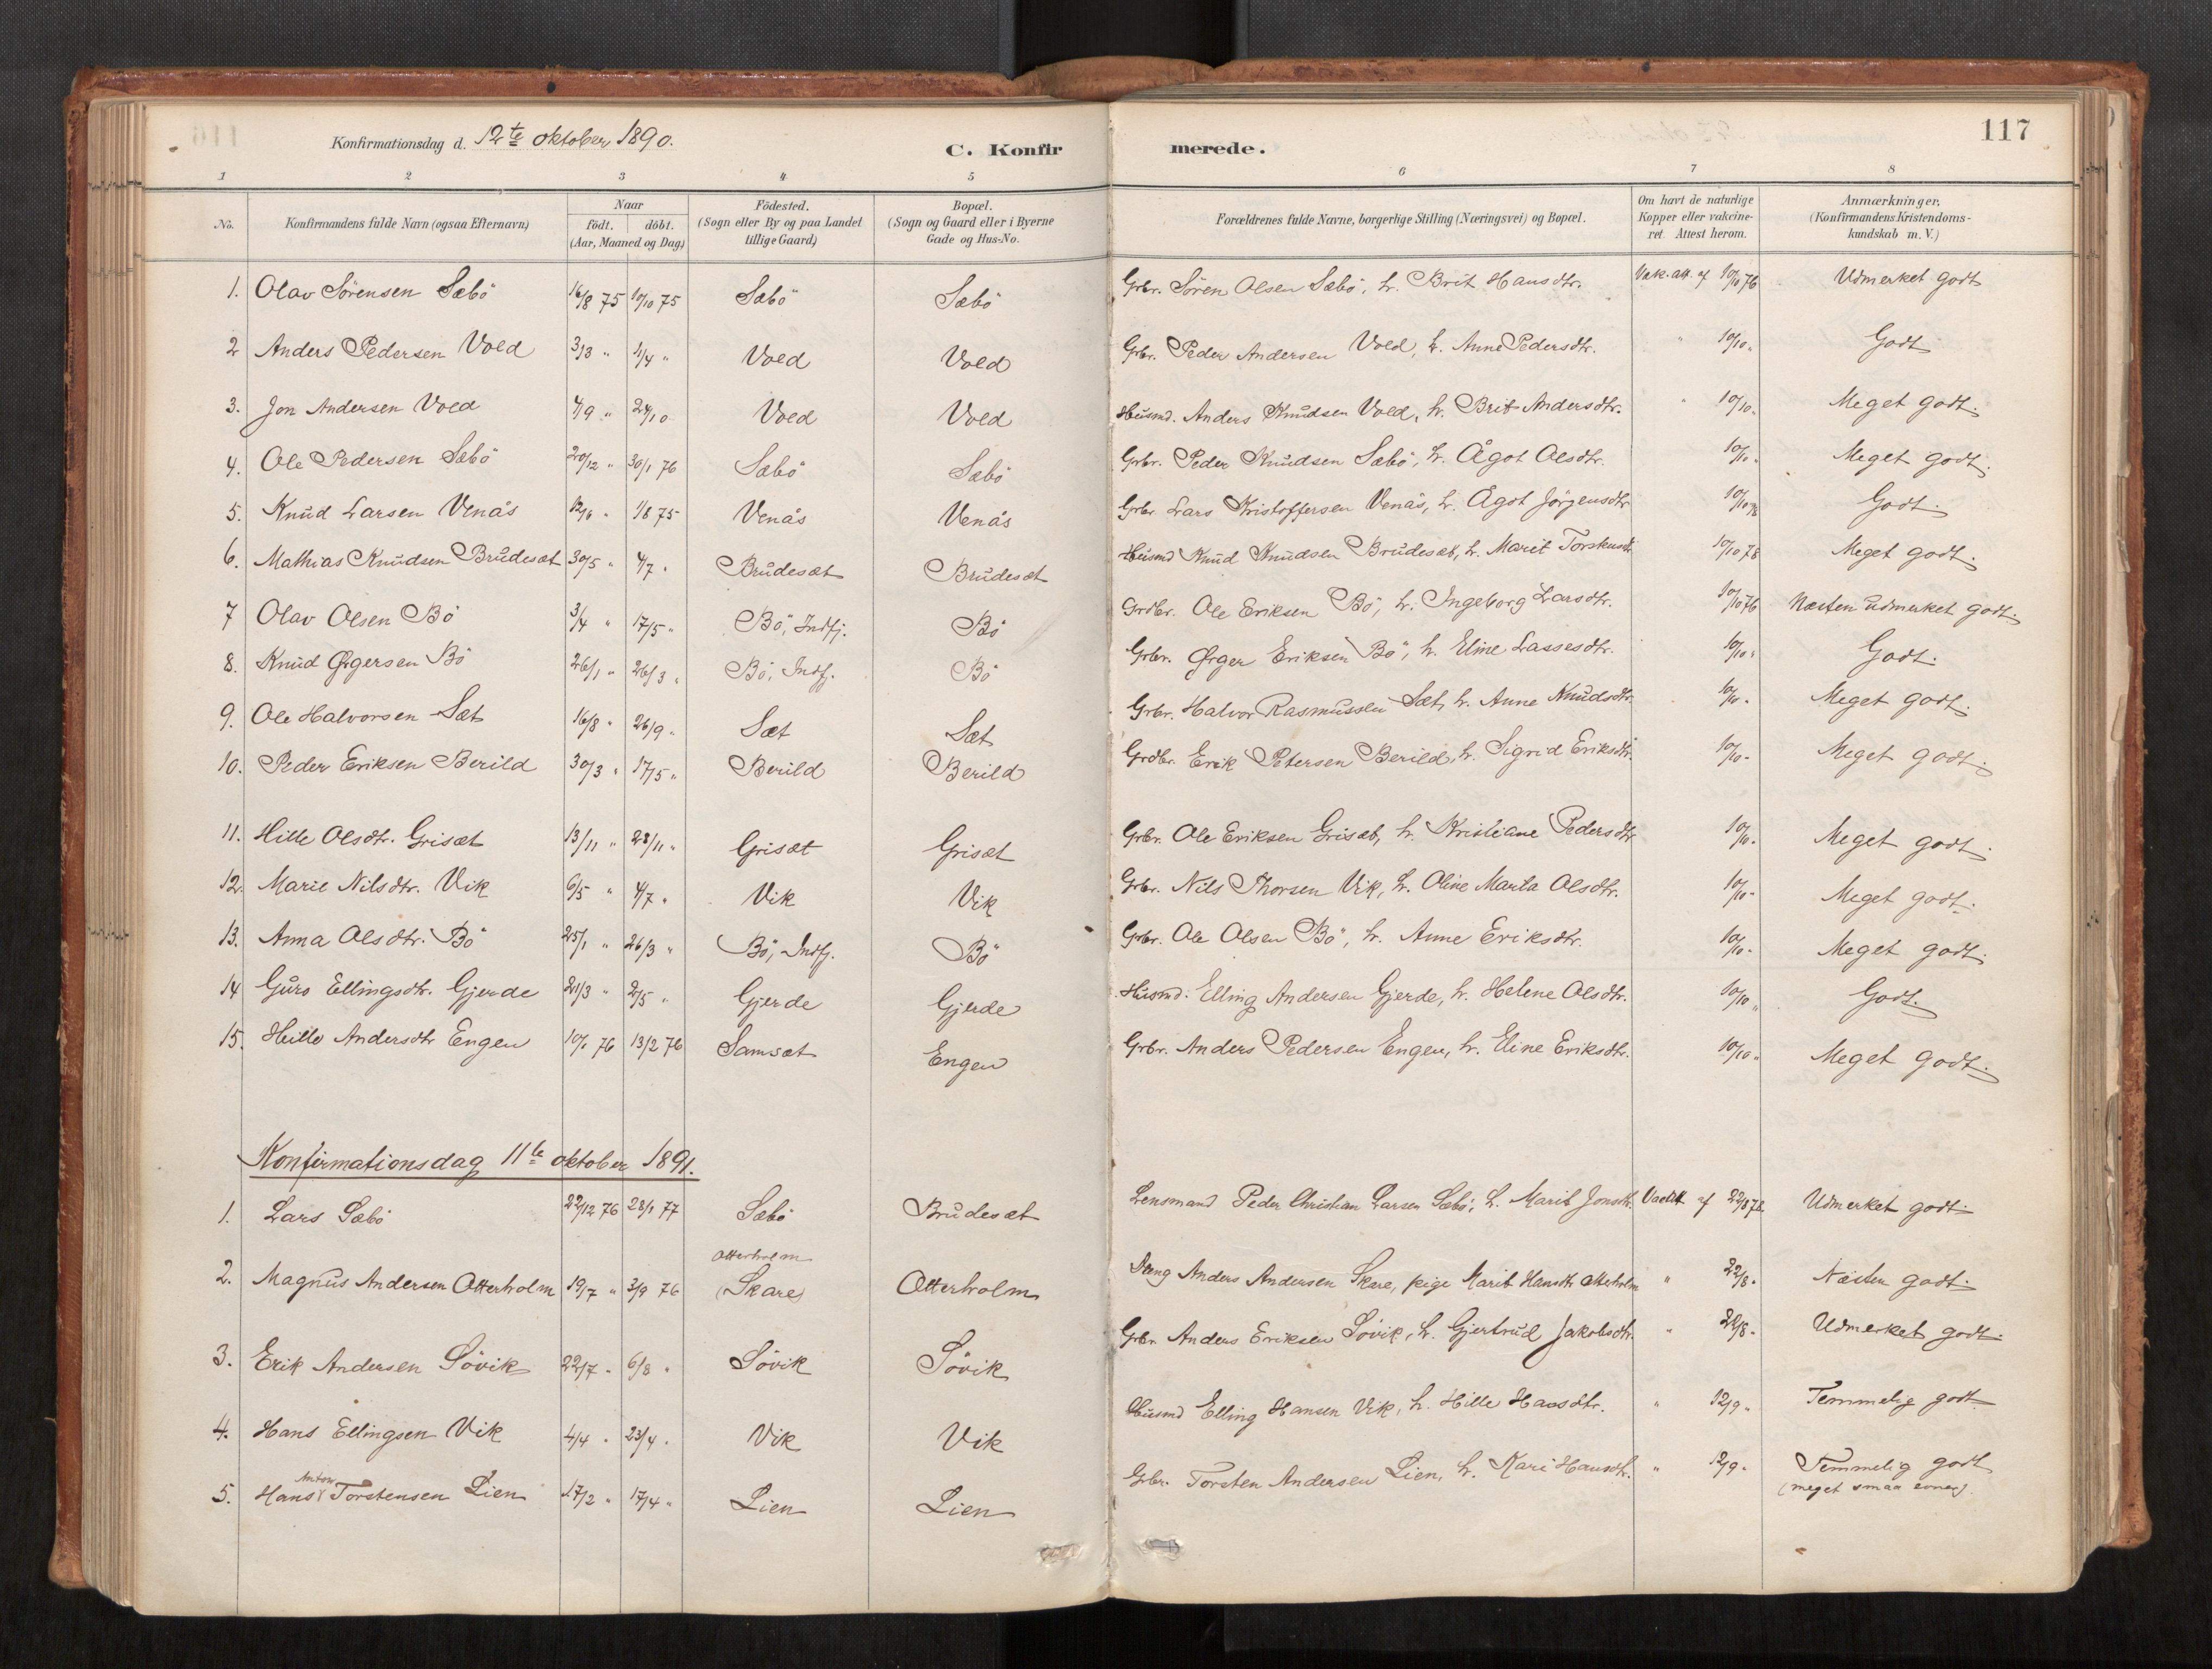 117
Konfirmationsdag d. 12te oktober 1890.
C. Konfirmerede.
1 2 3 4 5 6 7 8
No. Konfirmandens fulde Navn (ogsaa Efternavn) Naar födt. döbt. (Aar, Maaned og Dag) Födested. (Sogn eller By og paa Landet tillige Gaard) Bopæl. (Sogn og Gaard eller i Byerne Gade og Hus-No. Forældrenes fulde Navne, borgerlige Stilling (Næringsvei) og Bopæl. Om havt de naturlige Kopper eller vakcineret. Attest herom. Anmærkninger, (Konfirmandens Kristendomskundskab m. V.)
1. Olav Sörensen Sæbö 16/8 75 10/10 75 Sæbö Sæbö Grbr. Sören Olsen Sæbö, h. Brit Hansdtr. Vak. att. af 10/10 76 Udmerket godt
2 Anders Pedersen Vold 3/3 " 11/4 " Vold Vold Grbr. Peder Andersen Vold, h. Anne Pedersdtr. " 10/10 " Godt
3. Jon Andersen Vold 4/9 " 24/10 Vold Vold Husmd. Anders Knudsen Vold, h. Brit Andersdtr. " 10/10 " Meget godt.
4. Ole Pedersen Sæbö 20/12 " 30/1 76 Sæbö Sæbö Grbr. Peder Knudsen Sæbö, h. Ågot Olsdtr. 10/10 " Meget godt.
5. Knud Larsen Venås " 1/8 75 Venås Venås Grbr. Lars Kristoffersen Venås, h. Ågot Jörgensdtr 10/10 78 Godt.
6. Mathias Knudsen Brudesæt 30/5 " 4/7 " Brudesæt Brudesæt Husmd Knud Knudsen Brudesæt, h. Marit Torstensdtr. 10/10 78 Meget godt.
7 Olav Olsen Bö 3/4 " 17/5 " Bö, Indfj. Bö Grdbr. Ole Eriksen Bö, h. Ingeborg Larsdtr. 10/10 76 Næsten udmerket godt.
8. Knud Ørgersen Bö 26/1 " 26/3 " Bö, Indfj. Bö Grbr. Ørger Eriksen Bö, h. Eline Lassesdtr. 10/10 " Godt.
9. Ole Halvorsen Sæt 16/8 " 26/9 " Sæt Sæt Grbr. Halvor Rasmussen Sæt, h. Anne Knudsdtr. 10/10 " Meget godt.
10. Peder Eriksen Berild 30/3 " 17/5 " Berild Berild Grdbr. Erik Petersen Berild, h. Sigrid Eriksdtr. 10/10 " Meget godt.
11. Hille Olsdtr. Grisæt 13/11 " 28/11 " Grisæt Grisæt Grbr. Ole Eriksen Grisæt, h. Kristiane Pedersdtr 10/10 " Meget godt.
12. Marie Nilsdtr. Vik 6/5 " 4/7 " Vik Vik Grbr. Nils Thorsen Vik, h. Oline Marta Olsdtr. 10/10 " Meget godt.
13. Anna Olsdtr. Bö 25/1 " 26/3 " Bö, Indfj. Bö Grbr. Ole Olsen Bö, h. Anne Eriksdtr. 10/10 " Meget godt.
14 Guro Ellingsdtr. Gjerde 21/3 " 2/5 " Gjerde Gjerde Husmd. Elling Andersen Gjerde, h. Helene Olsdtr. 10/10 " Godt.
15. Hille Andersdtr Engen 10/1 76 13/2 76 Samsæt Engen Grbr. Anders Pedersen Engen, h. Eline Eriksdtr. 10/10 " Meget godt.
Konfirmationsdag 11te oktober 1891.
1. Lars Sæbö 22/12 76 28/1 77 Sæbö Brudesæt Lensmand Peder Christian Larsen Sæbö, h. Marit Jonsdtr. af 22/8 78. Udmerket godt.
2. Magnus Andersen Otterholm 19/7 " 3/9 76 Otterholm (Skare) Otterholm Dreng Anders Andersen Skare, pige Marit Hansdtr Otterholm " 22/8 " Næsten godt.
3. Erik Andersen Sövik 22/7 " 6/8 " Sövik Sövik Grbr. Anders Eriksen Sövik, h. Gjertrud Jakobsdtr. " 22/8 " Udmerket godt.
4. Hans Ellingsen Vik 4/4 " 23/4 " Vik Vik Husmd Elling Hansen Vik, h. Hille Hansdtr. " 12/9 " Temmelig godt
5. Hans Anton Torstensen Lien 17/2 " 17/4 " Lien Lien Grbr. Torsten Andersen Lien, h. Kari Hansdtr. " 12/9 " Temmelig godt
(meget smaa evner).